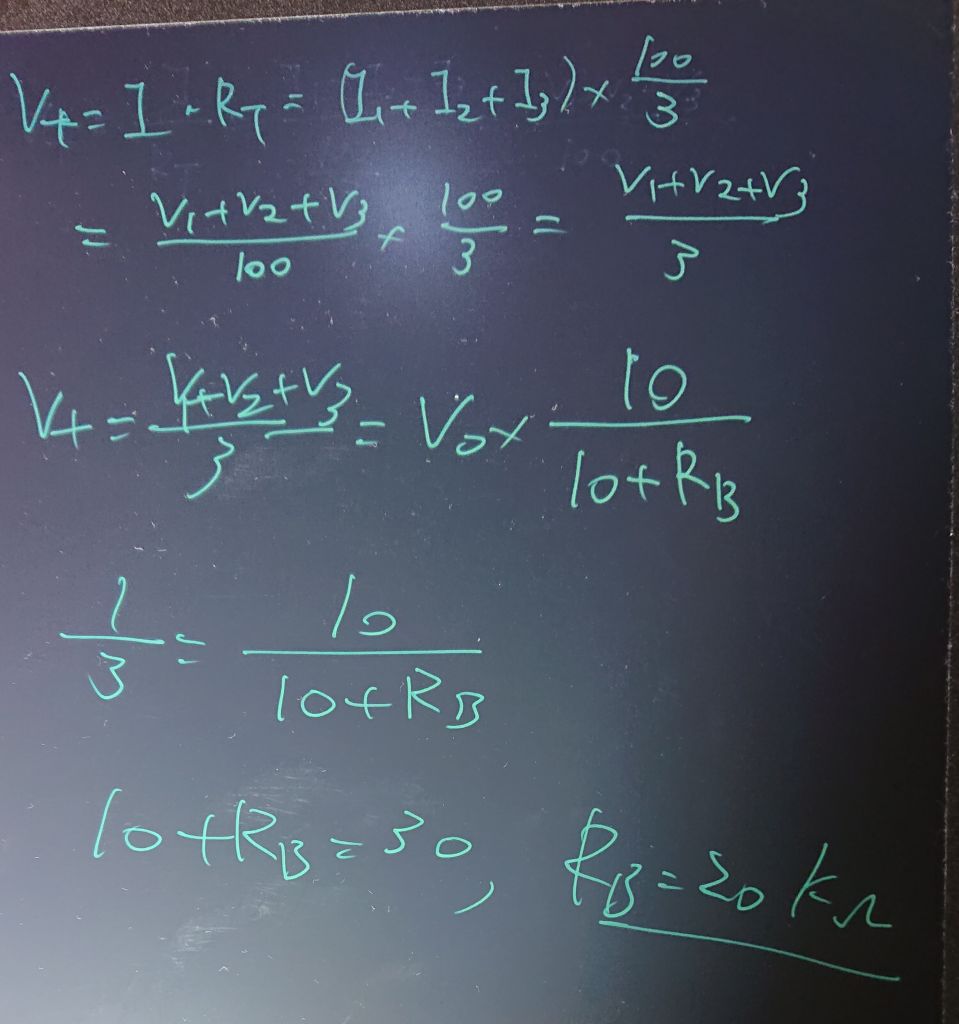 V+ = I · R_T = (I₁ + I₂ + I₃) × 100/3
= (V₁+V₂+V₃)/100 × 100/3 = (V₁+V₂+V₃)/3
V+ = (V₁+V₂+V₃)/3 = V₀ × 10/(10+R_B)
1/3 = 10/(10+R_B)
10+R_B = 30, R_B = 20 kΩ